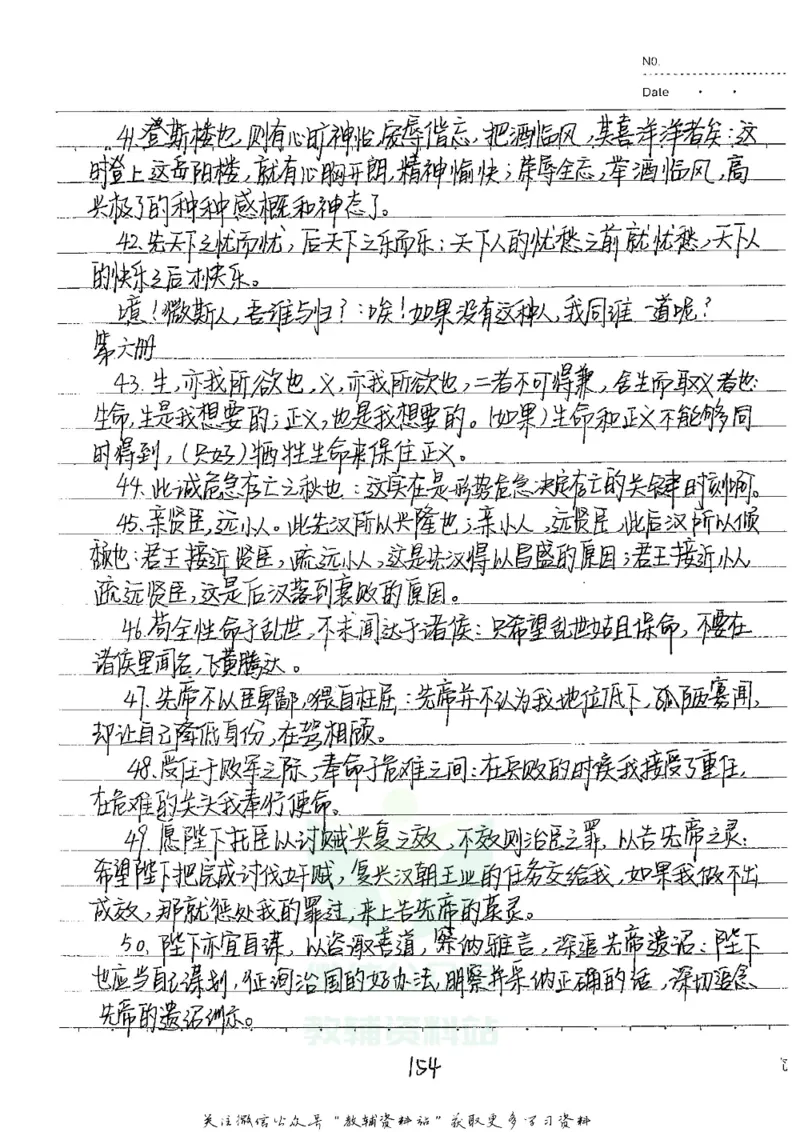 NO.
Date
41.登斯楼也,则有心旷神怡,宠辱偕忘,把酒临风,其喜洋洋者矣:这
时登上这岳阳楼,就有心胸开朗,精神愉快;荣辱全忘,举酒临风,高
兴极了的种种感概和神态了。
42.先天下之忧而忧,后天下之乐而乐:天下人的忧愁之前就忧愁,天下人
的快乐之后才快乐。
噫!微斯人,吾谁与归?:唉!如果没有这种人,我同谁一道呢?
第六册
43.生,亦我所欲也,义,亦我所欲也,二者不可得兼,舍生而取义者也:
生命,生是我想要的;正义,也是我想要的。(如果)生命和正义不能够同
时得到,(只好)牺牲生命来保住正义。
44.此诚危急存亡之秋也:这实在是形势危急决定存亡的关键时刻啊。
45.亲贤臣,远小人。此先汉所以兴隆也;亲小人,远贤臣,此后汉所以倾
颓也:君王接近贤臣,疏远小人,这是先汉得以昌盛的原因;君王接近小人
疏远贤臣,这是后汉落到衰败的原因。
46.苟全性命于乱世,不求闻达于诸侯:只希望乱世姑且保命,不要在
诸侯里闻名,飞黄腾达。
47.先帝不以臣卑鄙,猥自枉屈:先帝并不认为我地位低下,孤陋寡闻,
却让自己降低身份,在驾相顾。
48.受任于败军之际,奉命于危难之间:在兵败的时候我接受了重任,
在危难的关头我奉行使命。
49.愿陛下托臣以讨贼兴复之效,不效则治臣之罪,以告先帝之灵:
希望陛下把完成讨伐奸贼,复兴汉朝王业的任务交给我,如果我做不出
成效,那就惩处我的罪过,来上告先帝的英灵。
50.陛下亦宜自谋,以咨诹善道,察纳雅言,深追先帝遗诏:陛下
也应当自己谋划,征询治国的好办法,明察并采纳正确的话,深切追念
先帝的遗诏训示。
教辅资料站
154
关注微信公众号"教辅资料站"获取更多学习资料